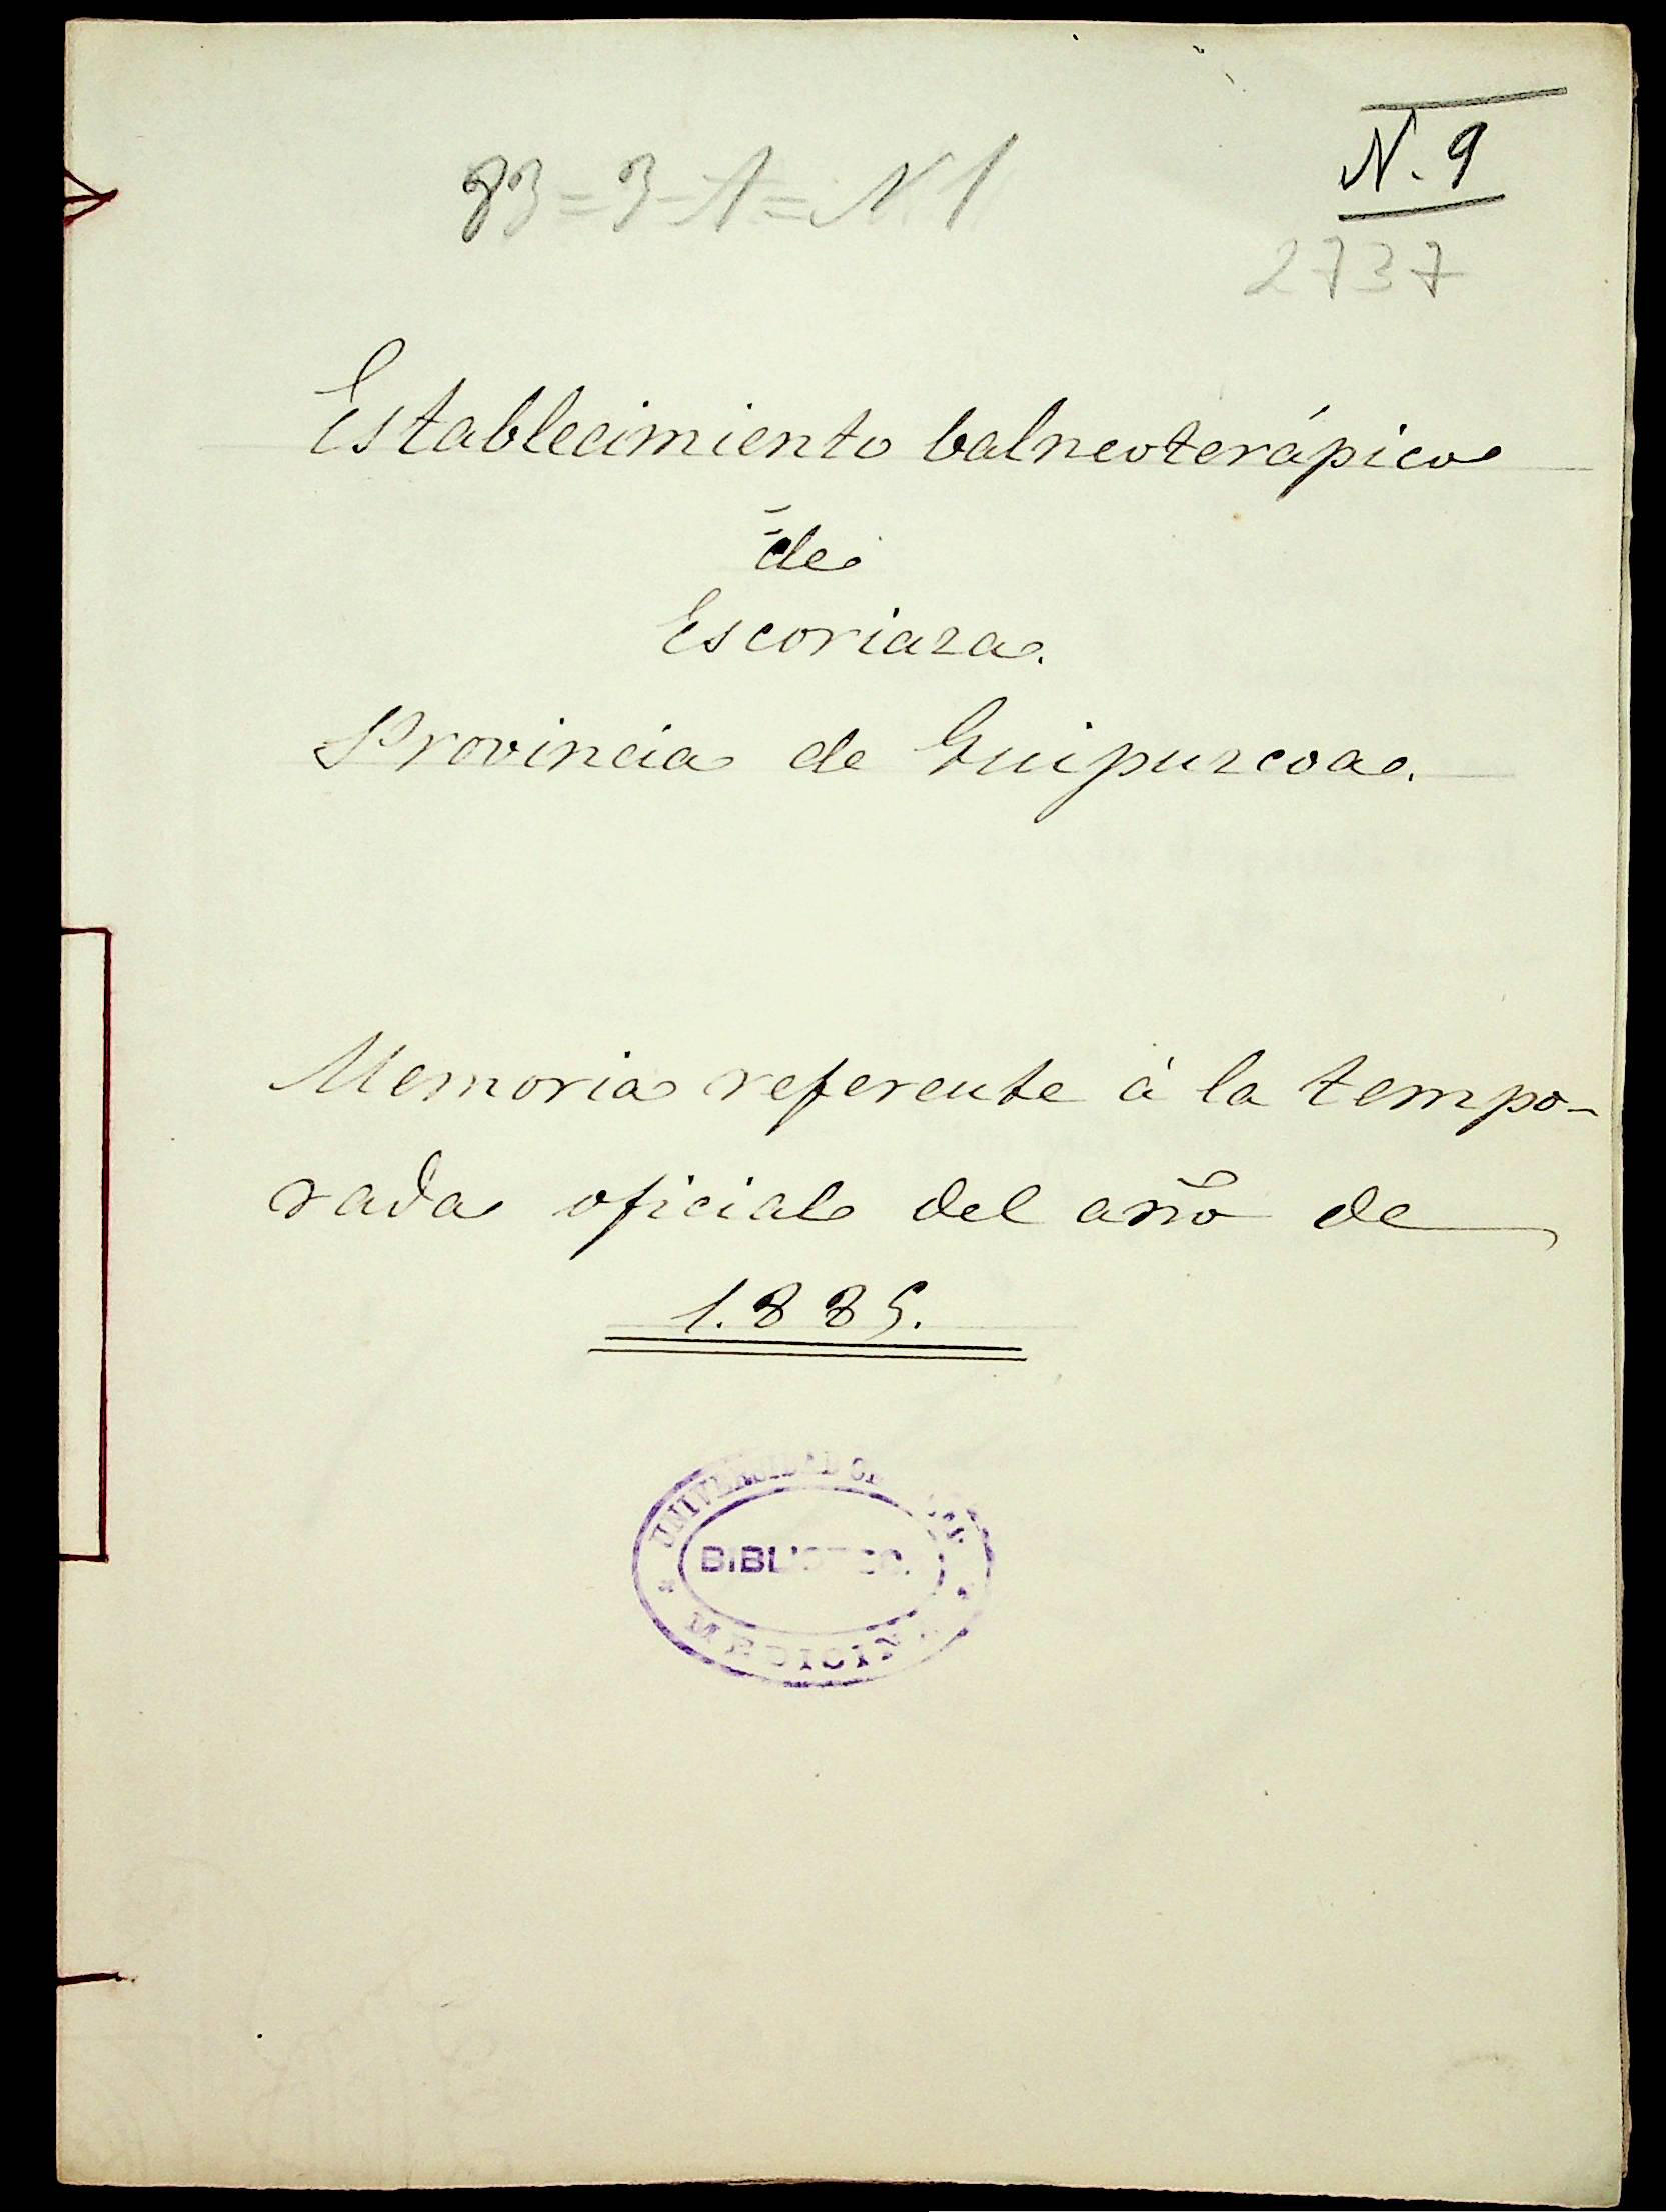 N. 9
83=3-A=N 1
2737
Establecimiento balneoterápico
de
Escoriaza.
Provincia de Guipuzcoa.
Memoria referente á la tempo-
rada oficial del año de
1.885.
UNIVERSIDAD DE
BIBLIOTEC
MEDICINA